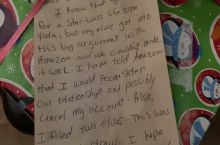 I know that
for a Star Wars
Yoda, but my elves got into
this big argument with
Amazon and we couldn't make
it work. I have told Amazon
that I would reconsider
our relationship and possibly
cancel my account. Also,
I fired two elves. This was
I hope